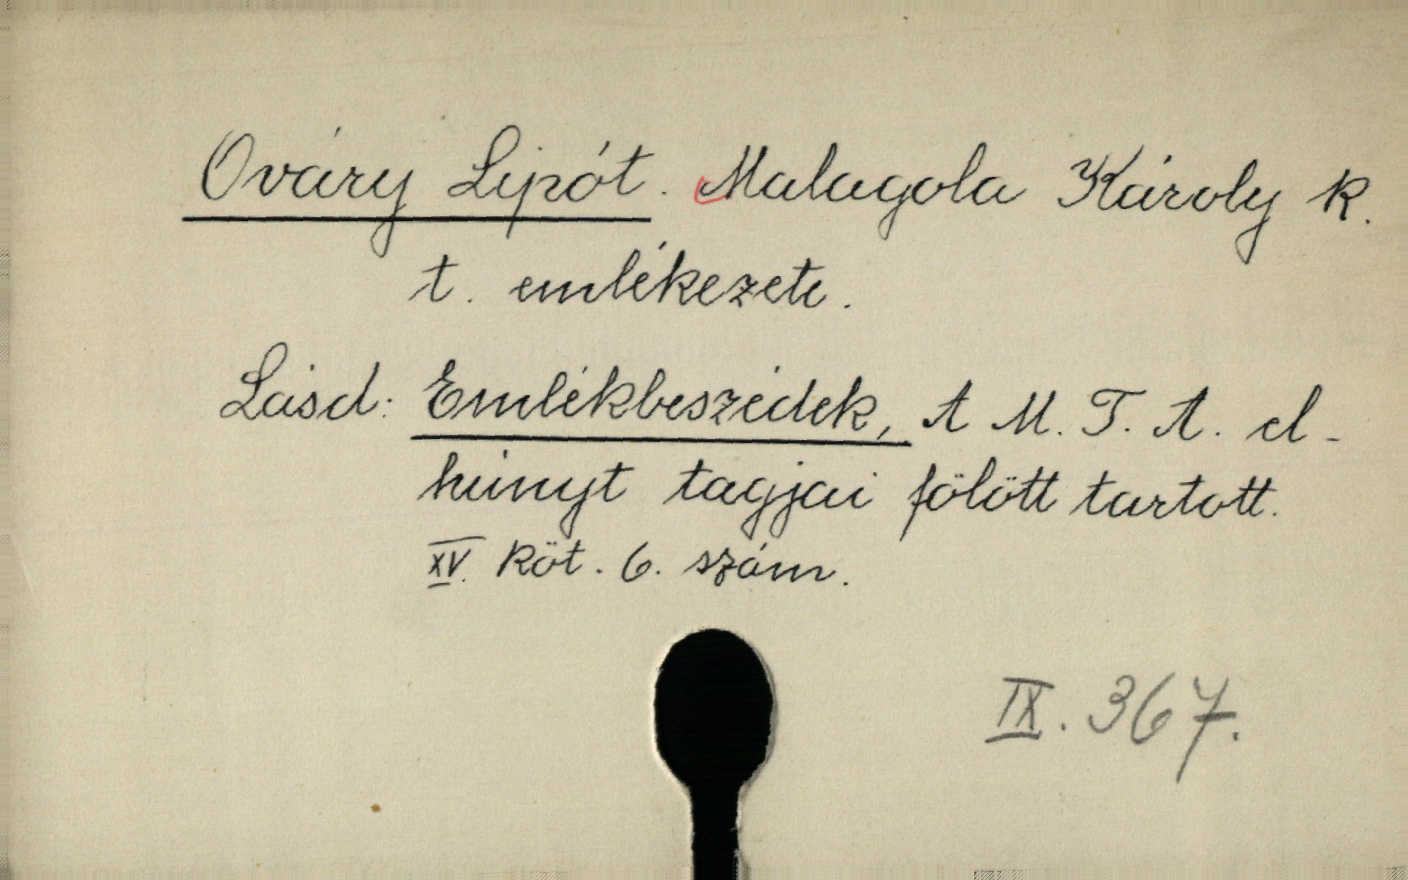 Ováry Lipót. Malagola Károly k.
t. emlékezete.
Lásd: Emlékbeszédek, A M. T. A. el-
húnyt tagjai fölött tartott.
XV. köt. 6. szám.
IX. 367.